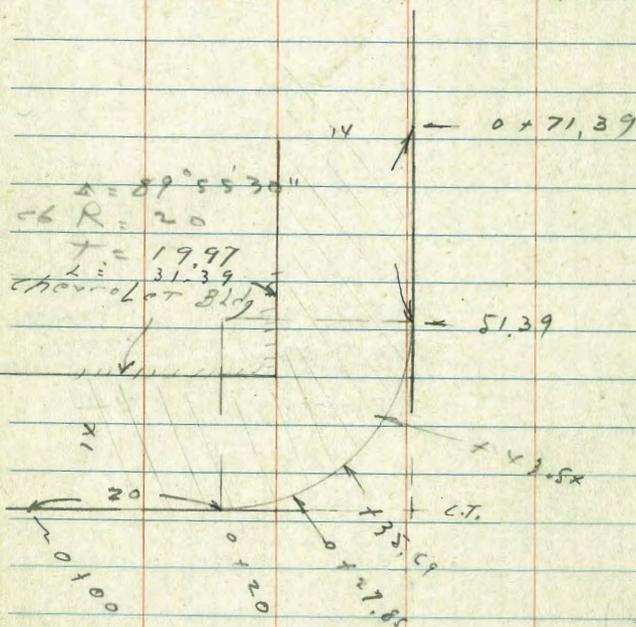 14
0 + 71.39
Δ = 89° 55' 30"
cb R = 20
T = 19.97
L = 31.39
Chevrolet Bldg
51.39
+ 43.54
20
C.T.
+ 35.69
0 + 27.85
0 + 20
0 + 00